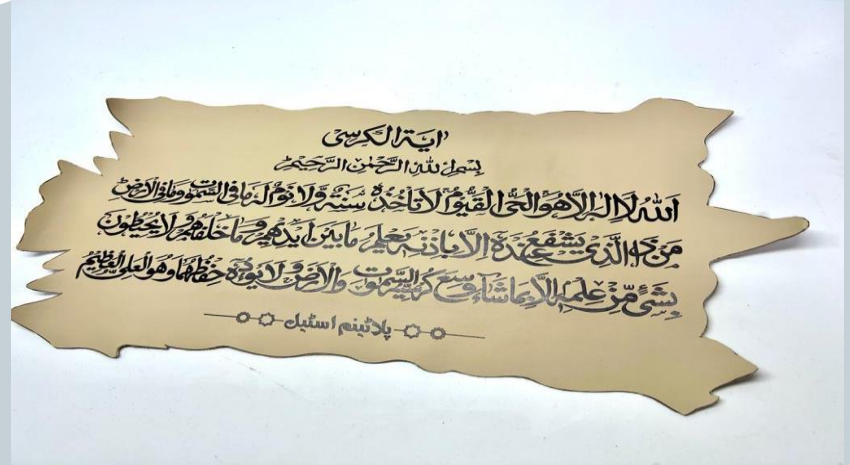 اٰیَۃُ الْکُرْسِی
بِسْمِ اللّٰهِ الرَّحْمٰنِ الرَّحِیْمِ
اَللّٰهُ لَا اِلٰهَ اِلَّا هُوَ الْحَیُّ الْقَیُّوْمُ لَا تَاْخُذُهٗ سِنَةٌ وَّلَا نَوْمٌ لَهٗ مَا فِی السَّمٰوٰتِ وَمَا فِی الْاَرْضِ
مَنْ ذَا الَّذِیْ یَشْفَعُ عِنْدَهٗ اِلَّا بِاِذْنِهٖ یَعْلَمُ مَا بَیْنَ اَیْدِیْهِمْ وَمَا خَلْفَهُمْ وَلَا یُحِیْطُوْنَ
بِشَیْءٍ مِّنْ عِلْمِهٖ اِلَّا بِمَا شَآءَ وَسِعَ کُرْسِیُّهُ السَّمٰوٰتِ وَالْاَرْضَ وَلَا یَئُوْدُهٗ حِفْظُهُمَا وَهُوَ الْعَلِیُّ الْعَظِیْمُ
پلاٹینم اسٹیل